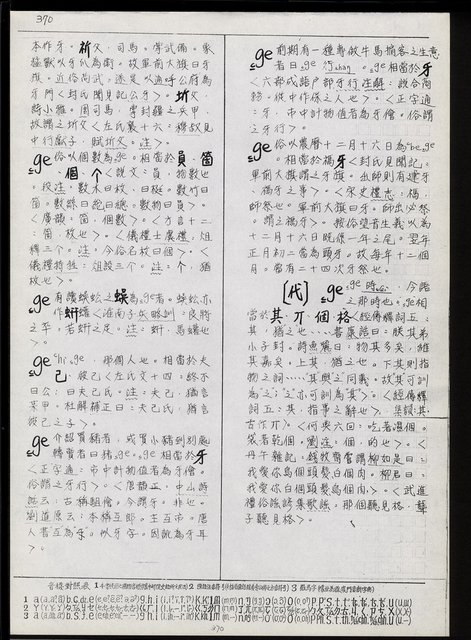 370
本作牙。祈父,司馬。掌武備。象
猛獸以爪牙為衛。故軍前大旗曰牙
旗。近俗尚武,遂是以通呼公府為
牙門《封氏聞見記公牙》。圻父,
詩小雅。周司馬,掌封疆之兵甲。
故謂之圻父《左氏襄十六:穆叔見
中行獻子,賦圻父。注》。
ge 俗以個數為ge。相當於員、箇
、個、个《說文:員,物數也
。段注:數木曰枚、曰梃。數竹曰
箇。數絲曰紽曰總。數物曰員》。
《廣韻:箇,個數》。《方言十二
:箇,枚也》。《儀禮士虞禮:俎
釋三个。注:今俗名枚曰個》。《
儀禮特牲:俎釋三个。注:个,猶
枚也》。
ge 有謂蜈蚣之蜈為ge者。蜈蚣亦
作蚈《淮南子兵略訓:良將
之卒,若蚈之足。注:蚈,馬蠸也
》。
ge hi ge,那個人也。相當於夫
己。彼己《左氏文十四:終不
曰公,曰夫己氏。注:夫己,猶言
某甲。杜解補正曰:夫己氏,猶言
彼己之子》。
ge 介紹買豬者,或買小豬到別處
轉賣者曰豬ge。ge相當於牙
《正字通:市中計物值者為牙儈。
俗謂之牙行》。《唐韻正:中山詩
話云:古稱駔儈,今謂牙。非也。
劉道原云:本稱互郎。主互市。唐
人書互為牙。似牙字。因訛為牙耳
》。
ge 前期有一種專做牛馬掮客之生意
者曰ge行chan。ge相當於牙
《六部成語戶部牙行注解:議合商
務,從中作保之人也》。《正字通
:牙,市中計物值者為牙儈。俗謂
之牙行》。
ge 俗以農曆十二月十六日為be ge
。相當於禡牙《封氏聞見記:
軍前大旗謂之牙旗。出師則有建牙
、禡牙之事》。《宋史禮志:禡,
師祭也。軍前大旗曰牙。師出必祭
。謂之禡牙》。按俗望音生義以為
十二月十六日既係一年之尾。翌年
正月初二當為頭牙。故每年十二個
月。當有二十四次牙祭也。
〔代〕 ge ge時么,今語
之那時也。ge相
當於其、丌、個、格《經傳釋詞五:
其,猶之也……書康誥曰:朕其弟
小子封。詩魚麗曰:物其多矣,維
其嘉矣。上其,猶之也。下其則指
物之詞……其與之同義。故其可訓
為之;之亦可訓為其》。《經傳釋
詞五:其,指事之辭也》,集韻:其
古作丌》。《何典六回:吃者濕個。
袋者乾個。劉注:個,的也》。《
丹午雜記:錢牧齋嘗謂柳如是曰:
我愛你烏個頭髮白個肉。柳君曰:
我愛你白個頭髮烏個肉。》。《武進
禮俗謠諺集歇謠:那個聽見格,聾
子聽見格》。
音標對照表
370